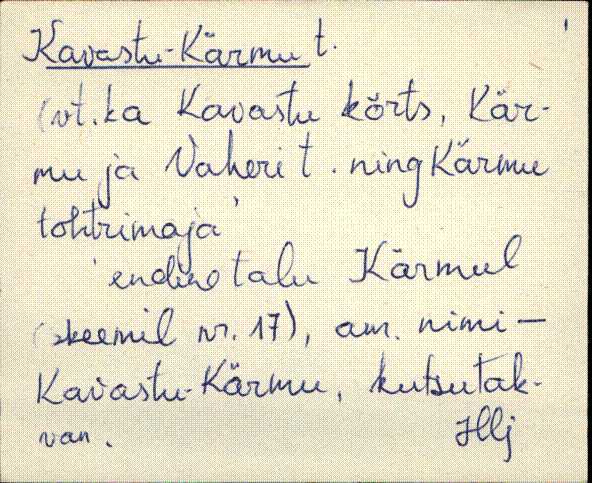 Kavastu-Kärmu t.
(vt. ka Kavastu kõrts, Kär-
mu ja Vaheri t. ning Kärmu
tohtrimaja)
endine talu Kärmul
(skeemil nr. 17), am. nimi –
Kavastu-Kärmu, kutsutak-
van.